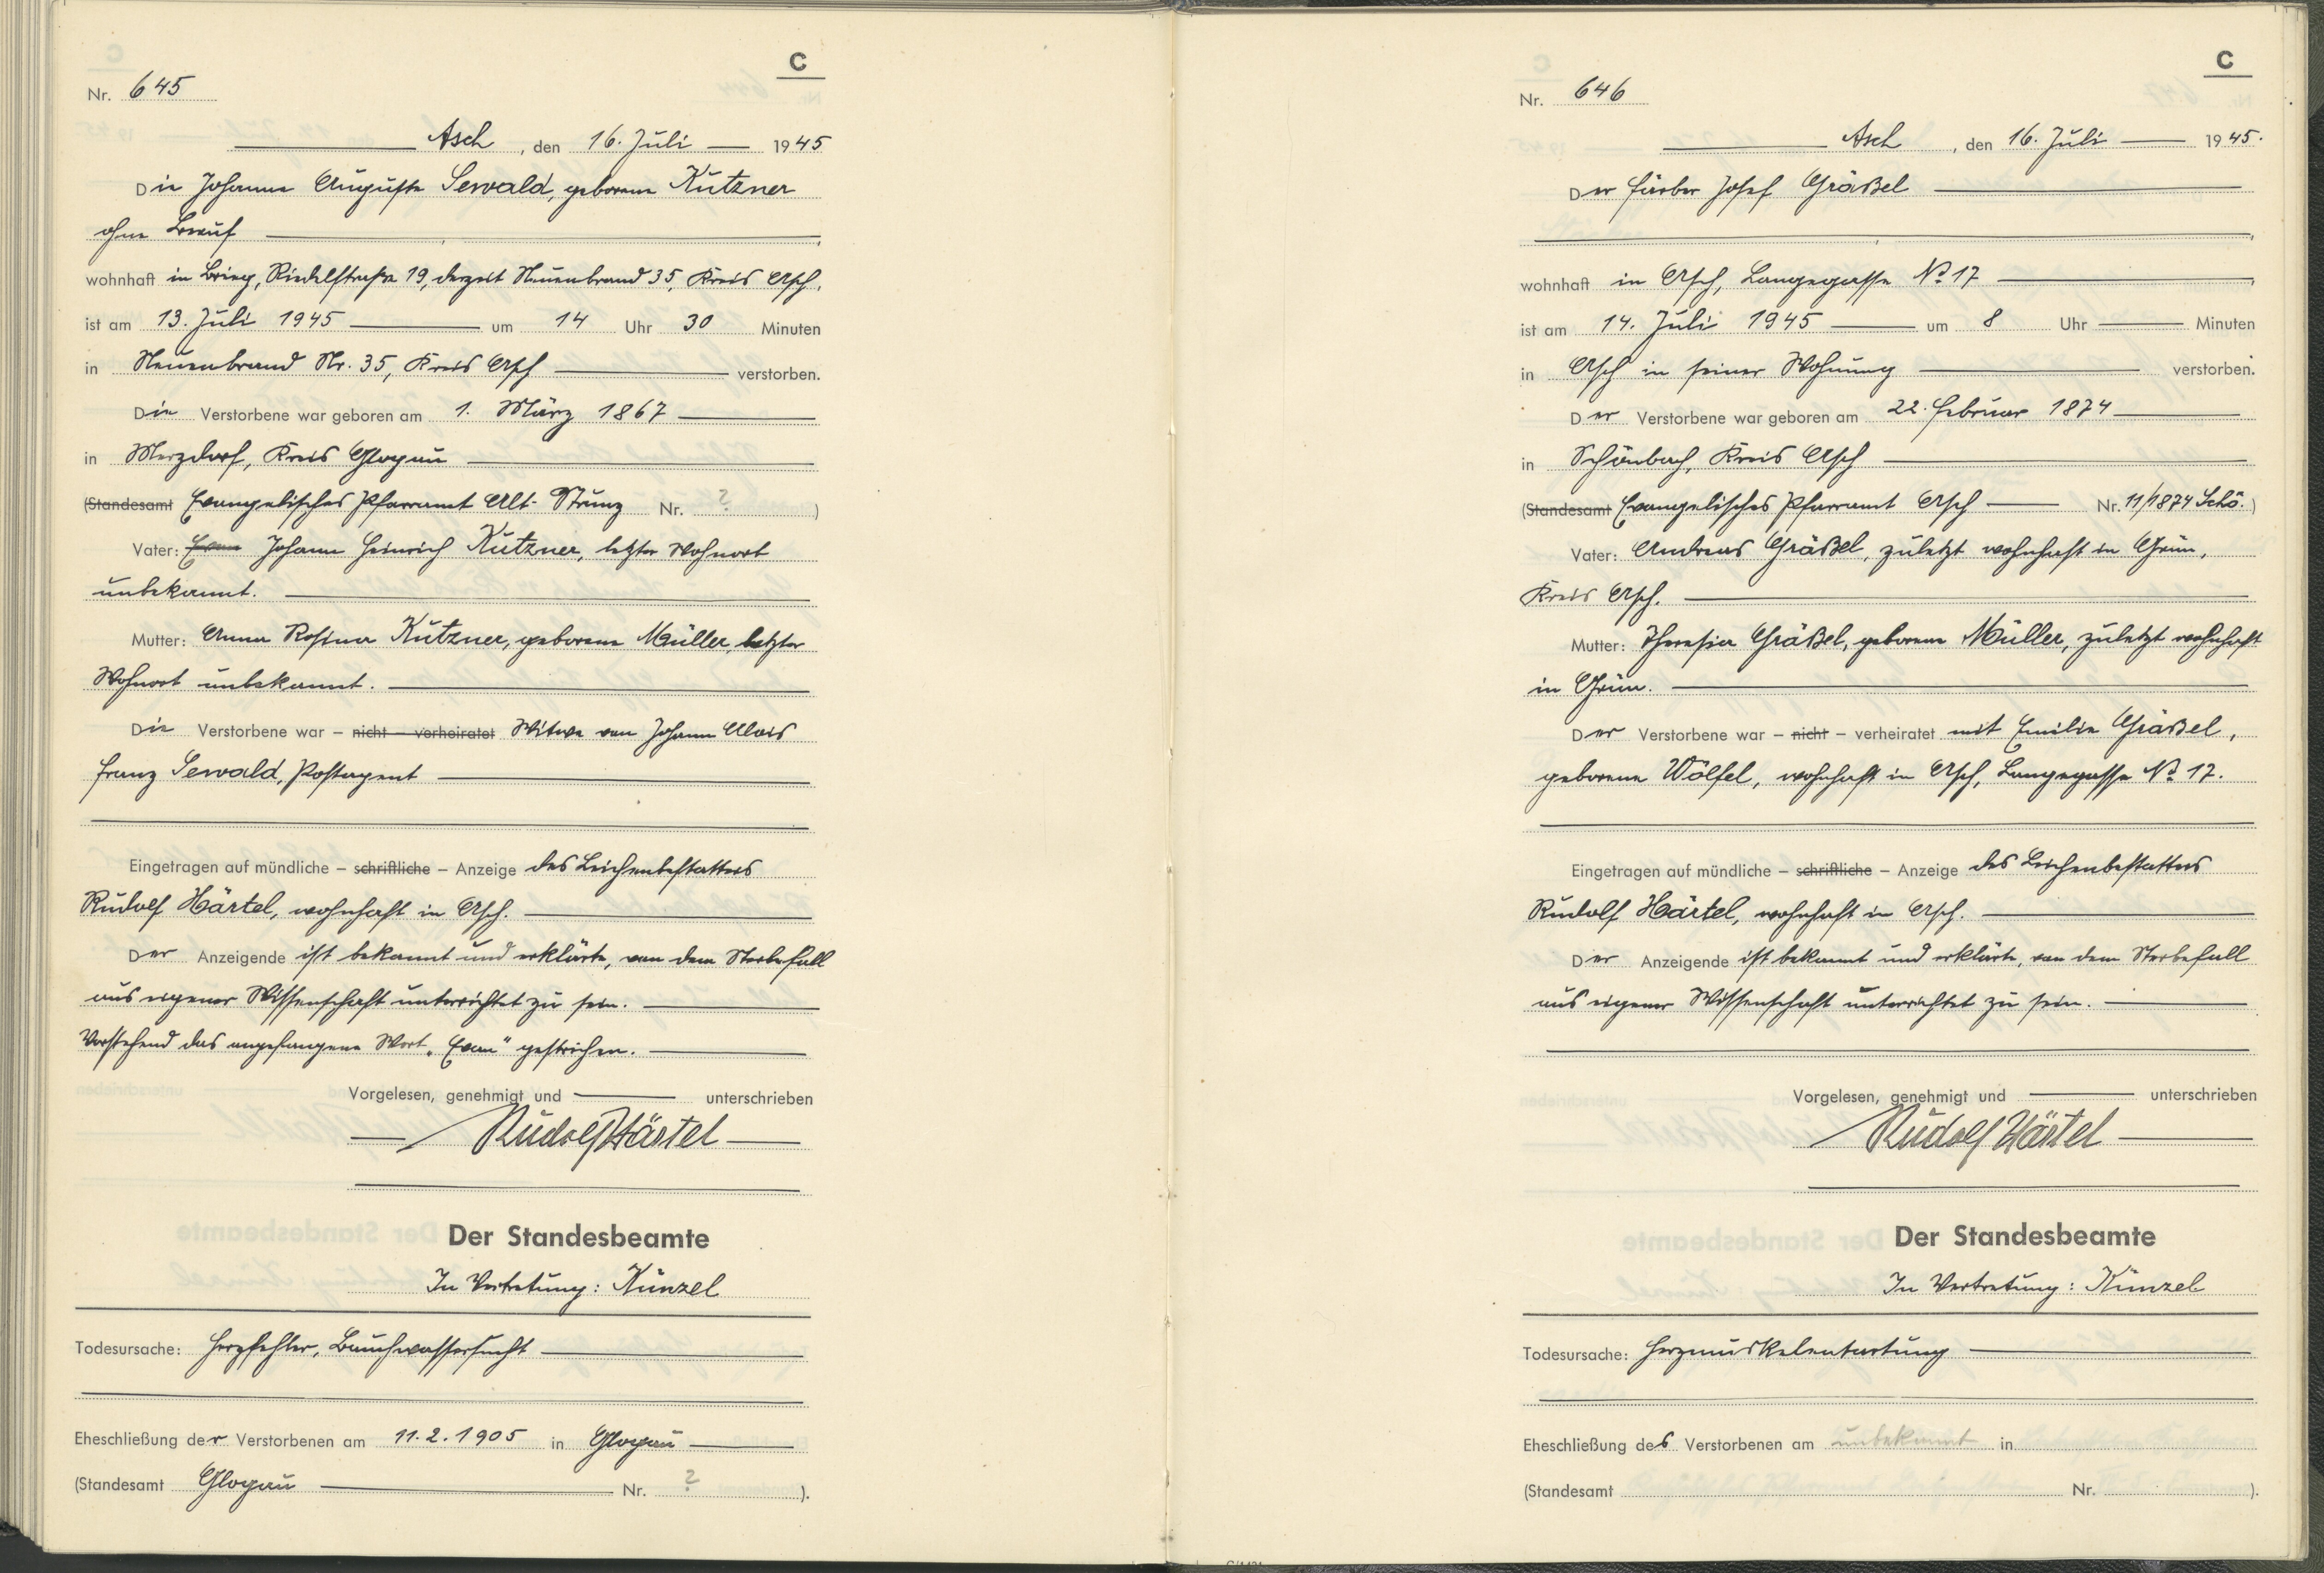 C
Nr. 645
Asch, den 16. Juli 1945
Die Johanne Auguste Sewald, geborene Kutzner
ohne Beruf,
wohnhaft in Brieg, Riedelstraße 19, derzeit Neuenbrand 35, Kreis Asch,
ist am 13. Juli 1945 um 14 Uhr 30 Minuten
in Neuenbrand Nr. 35, Kreis Asch verstorben.
Die Verstorbene war geboren am 1. März 1867
in Merzdorf, Kreis Glogau
(Standesamt Evangelisches Pfarramt Alt-Strunz Nr. ? )
Vater: Evan Johann Heinrich Kutzner, letzter Wohnort
unbekannt.
Mutter: Anna Rosina Kutzner, geborene Müller, letzter
Wohnort unbekannt.
Die Verstorbene war – nicht – verheiratet Witwe von Johann Alois
Franz Sewald, Postagent
Eingetragen auf mündliche – schriftliche – Anzeige des Leichenbestatters
Rudolf Härtel, wohnhaft in Asch.
Der Anzeigende ist bekannt und erklärte, von dem Sterbefall
aus eigener Wissenschaft unterrichtet zu sein.
Vorstehend das angefangene Wort „Evan" gestrichen.
Vorgelesen, genehmigt und unterschrieben
Rudolf Härtel
Der Standesbeamte
In Vertretung: Künzel
Todesursache: Herzfehler, Bauchwassersucht
Eheschließung der Verstorbenen am 11.2.1905 in Glogau
(Standesamt Glogau Nr. ? ).
C
Nr. 646
Asch, den 16. Juli 1945.
Der Färber Josef Gräßel
,
wohnhaft in Asch, Langegasse No 17,
ist am 14. Juli 1945 um 8 Uhr Minuten
in Asch in seiner Wohnung verstorben.
Der Verstorbene war geboren am 22. Februar 1874
in Schönbach, Kreis Asch
(Standesamt Evangelisches Pfarramt Asch Nr. 11/1874 Schö.)
Vater: Andreas Gräßel, zuletzt wohnhaft in Grün,
Kreis Asch.
Mutter: Theresia Gräßel, geborene Müller, zuletzt wohnhaft
in Grün.
Der Verstorbene war – nicht – verheiratet mit Emilie Gräßel,
geborene Wölfel, wohnhaft in Asch, Langegasse No 17.
Eingetragen auf mündliche – schriftliche – Anzeige des Leichenbestatters
Rudolf Härtel, wohnhaft in Asch.
Der Anzeigende ist bekannt und erklärte, von dem Sterbefall
aus eigener Wissenschaft unterrichtet zu sein.
Vorgelesen, genehmigt und unterschrieben
Rudolf Härtel
Der Standesbeamte
In Vertretung: Künzel
Todesursache: Herzmuskelentartung
Eheschließung des Verstorbenen am unbekannt in
(Standesamt Nr. ).